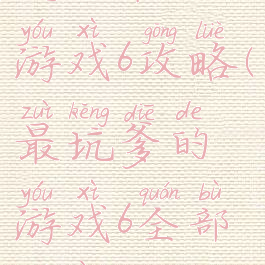 yóu xì gōng lüè
游戏6攻略(
zuì kēng diē de
最坑爹的
yóu xì quán bù
游戏6全部